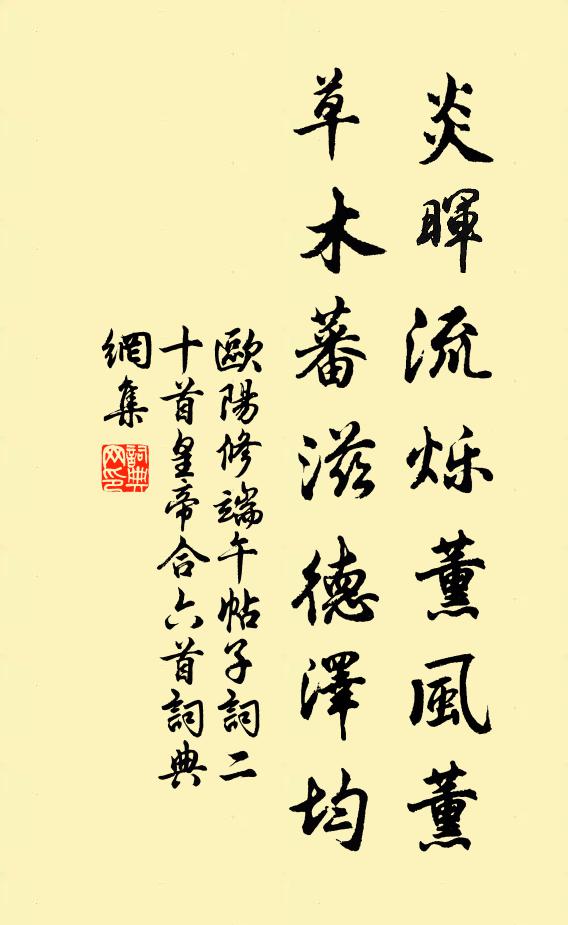 炎暉流烁薰風薰
草木蕃滋德澤均
歐陽修端午帖子詞二
十首皇帝合六首詞典
網集
詞典
网印